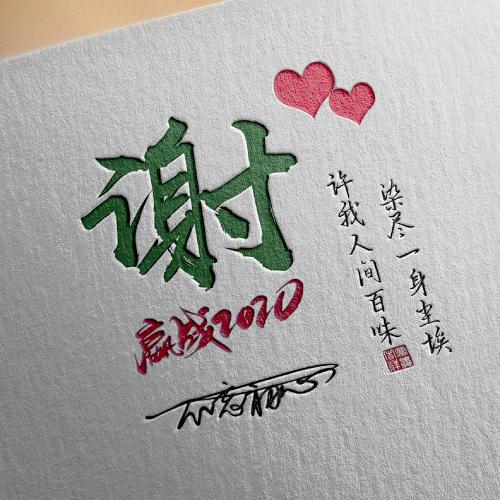 谢
赢战2020
染尽一身尘埃
许我人间百味